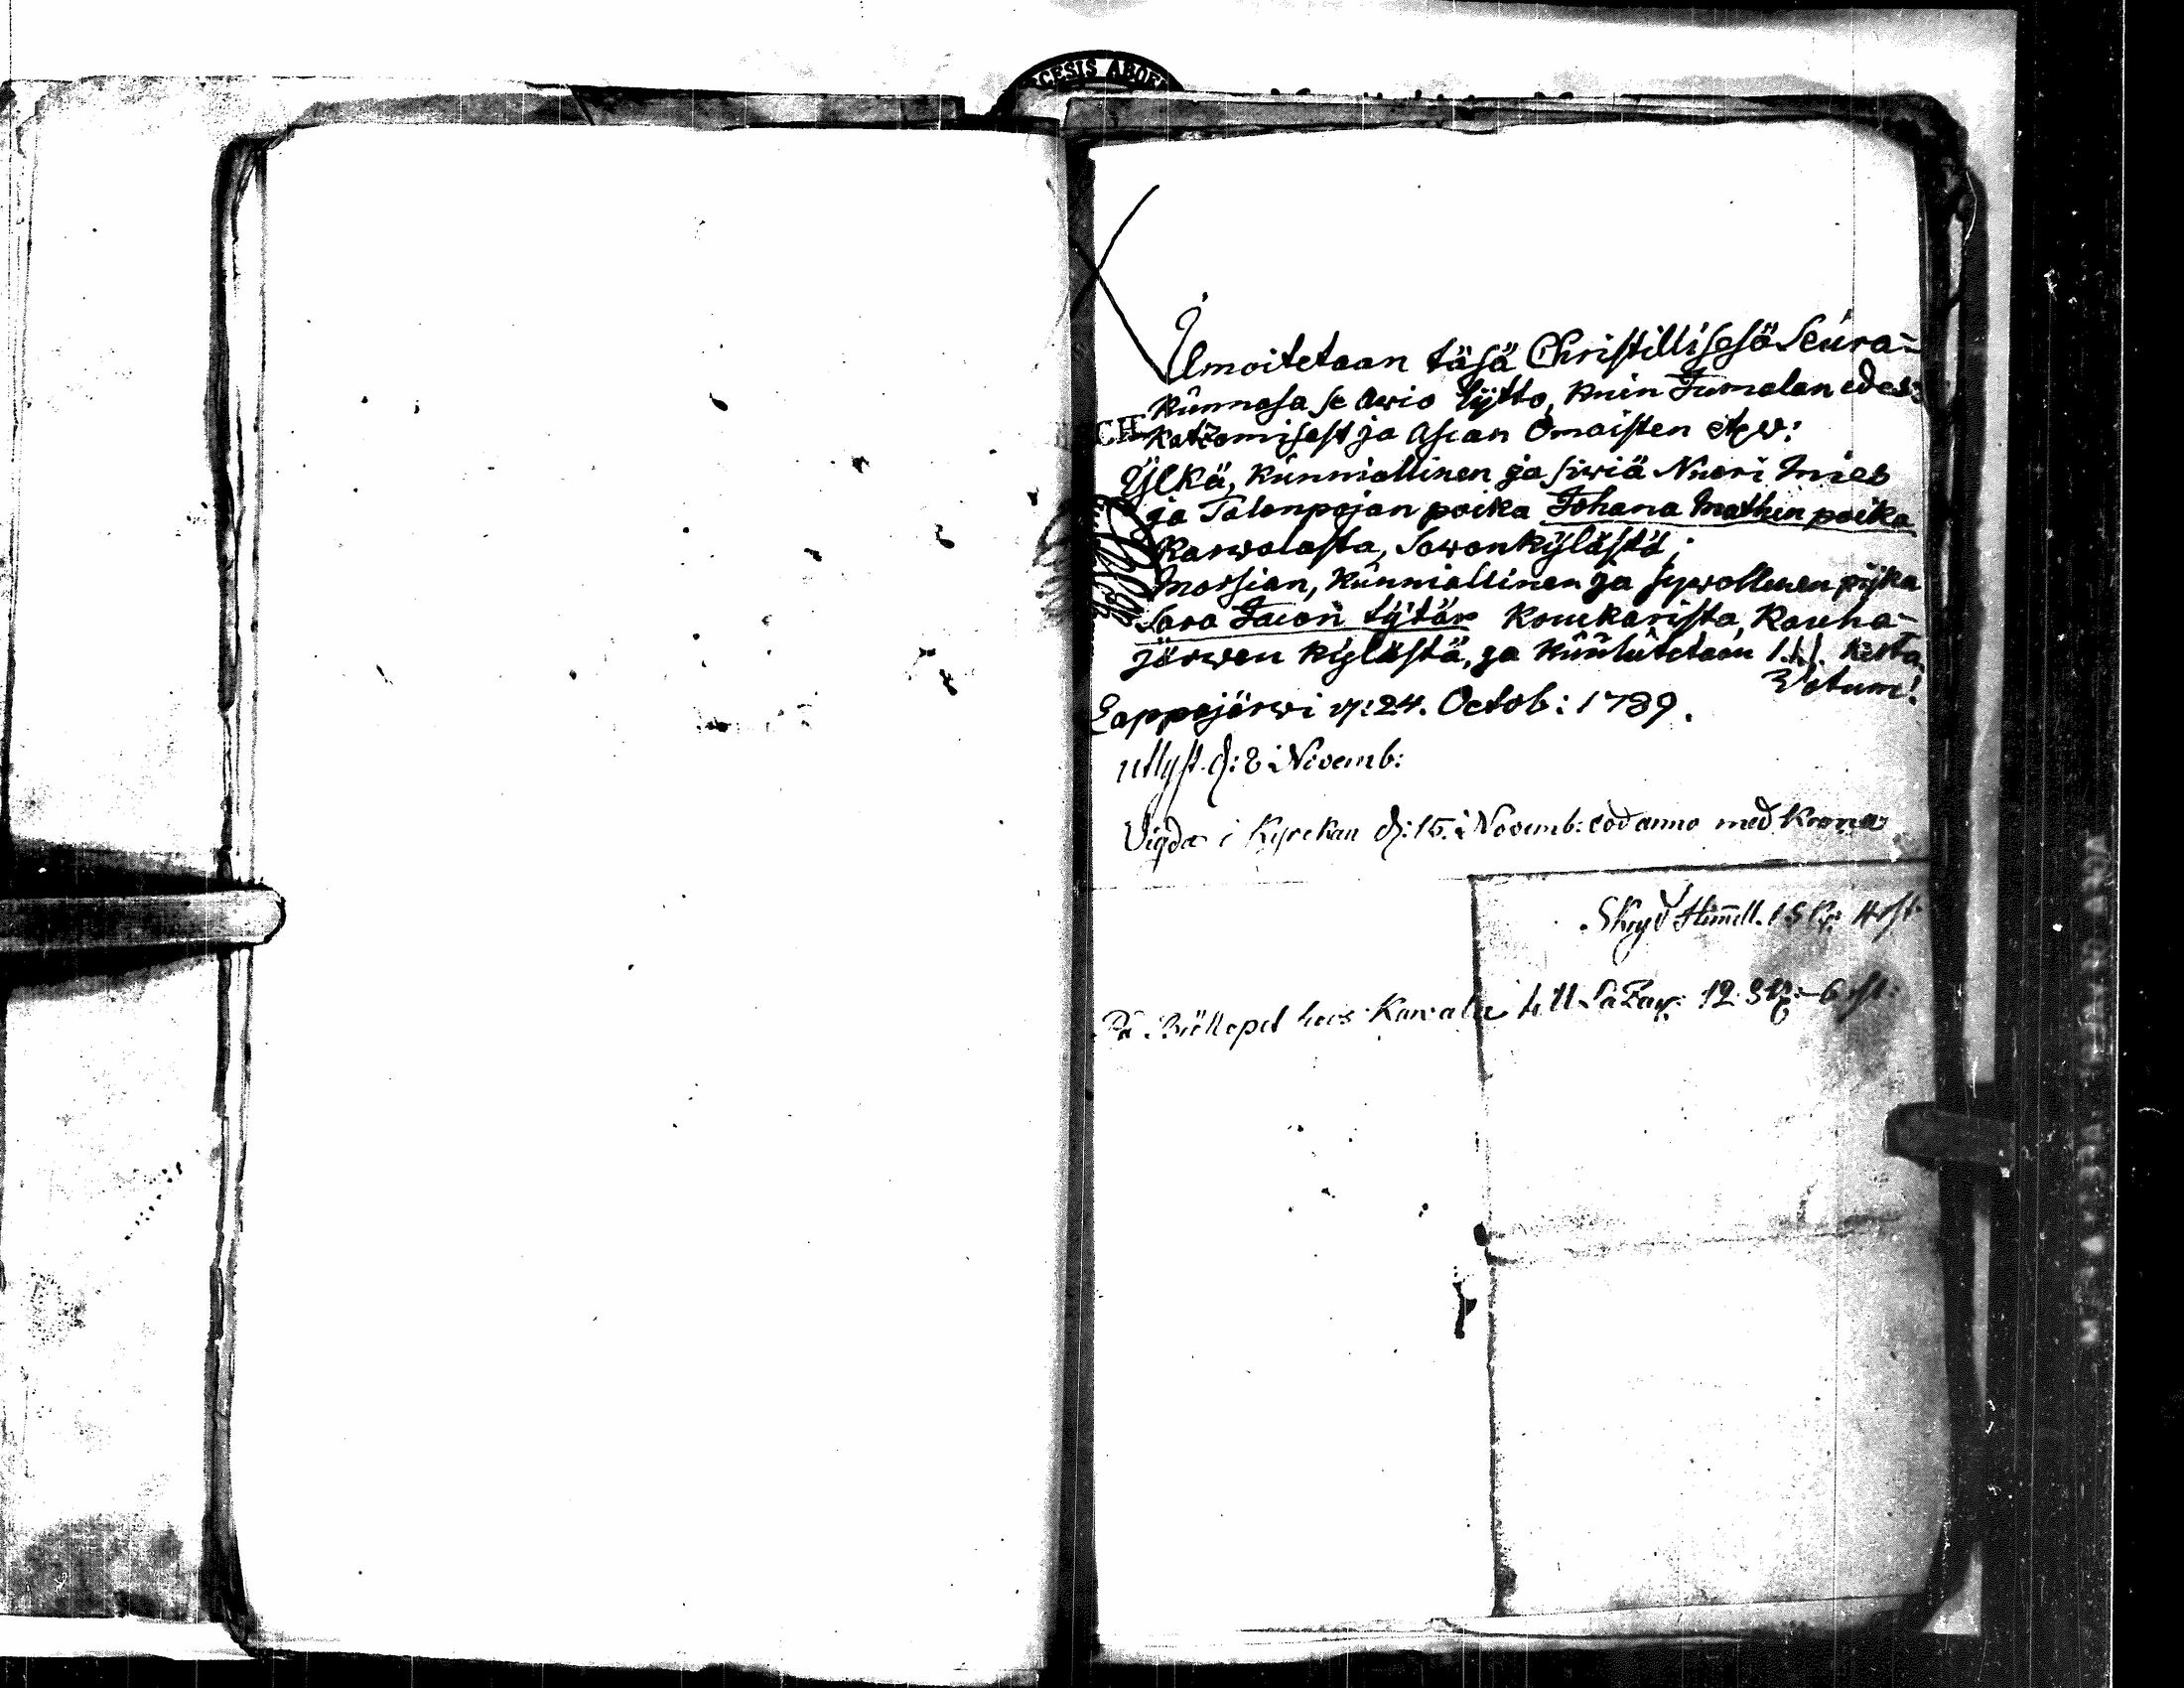 CESIS ABOEN
Ilmoitetaan täsä Christillisesä Seura-
kunnasa se Awio Lijtto, kuin Jumalan edes-
CH
katzomisest ja Asian Omaisten etc:
Ylkä, kunniallinen ja siwiä Nuori Mies
ja Talonpojan poika Johana Mathin poika
Karwalasta, Sawonkylästä;
Morsian, kunniallinen ja sywollinen pijka
Sara Jacon tytär Kouckarista, Kauha-
järwen kylästä, ja kuulutetaan 1. kerta
Votum!
Lappajärwi d: 24. Octob: 1789.
utlyst d: 8 Novemb:
Vigda i Kyrckan d: 15. Novemb: eod anno med Krona
Skryd Himell. 1 Sk: 4 st.
På Bröllopet hoos Karwala till Lazar: 12 Sk: 6 st: